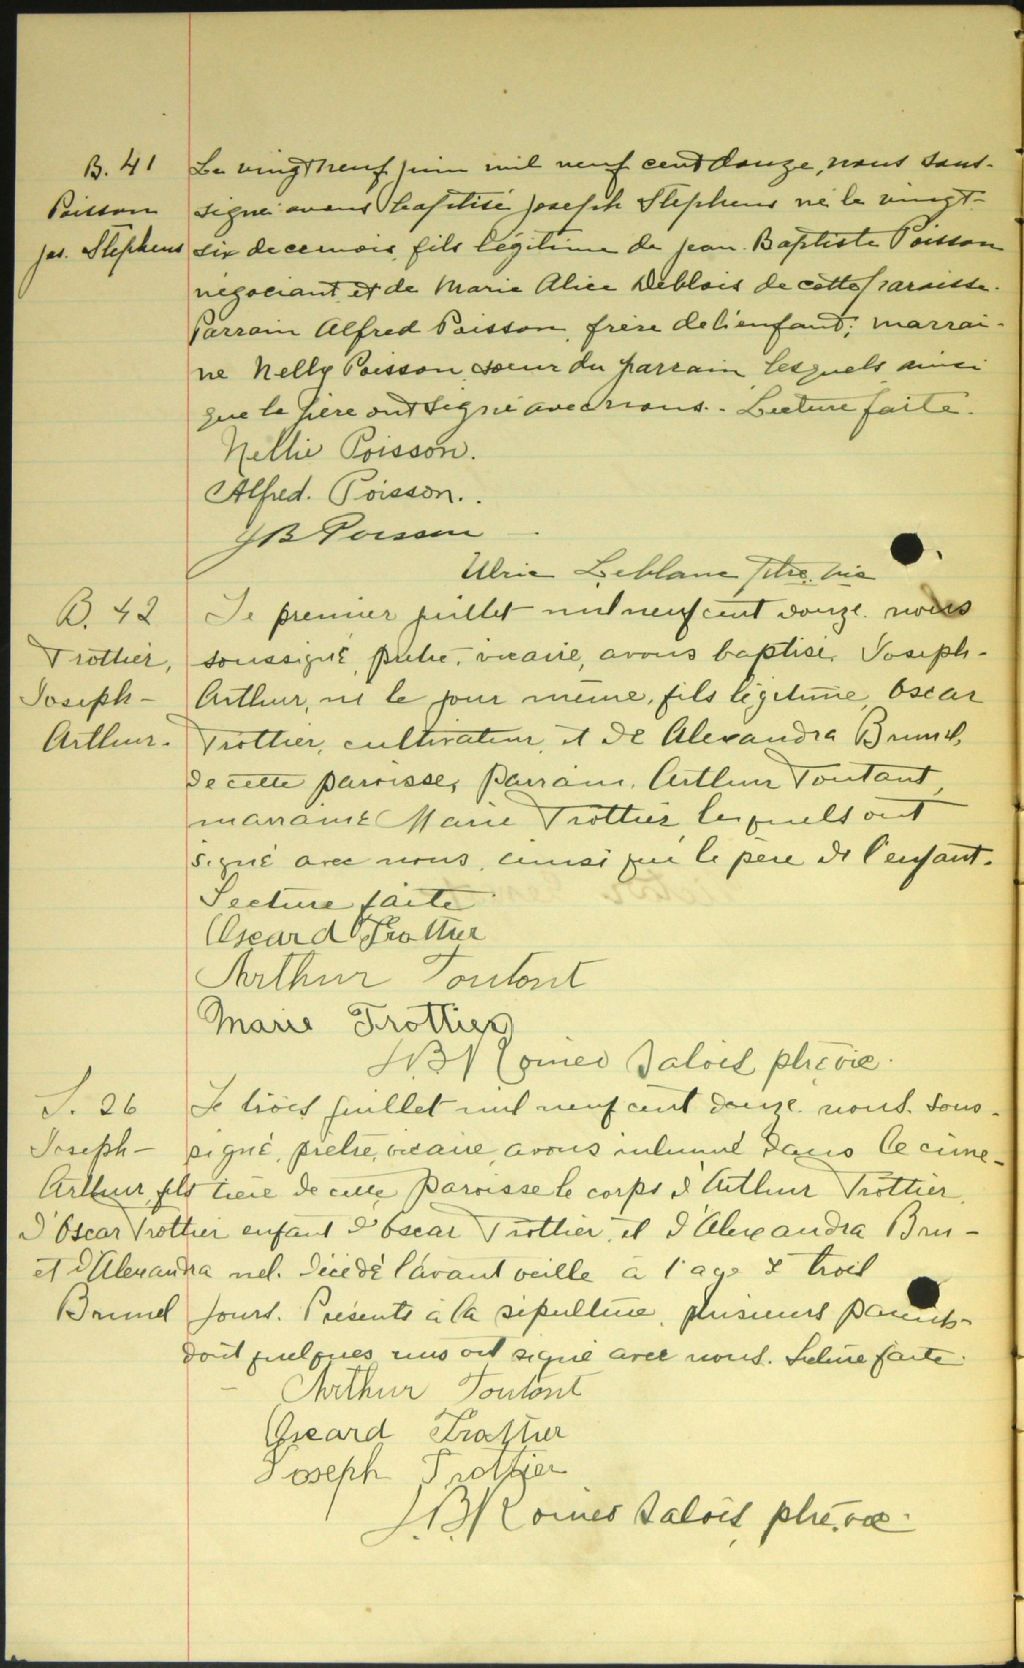 B. 41
Poisson
Jos. Stephens
Le vingt neuf juin mil neuf cent douze, nous sous-
signé avons baptisé Joseph Stephens né le vingt-
six de ce mois, fils légitime de Jean Baptiste Poisson
négociant et de Marie Alice Deblois de cette paroisse.
Parrain Alfred Poisson, frère de l'enfant; marrai-
ne Nelly Poisson soeur du parrain lesquels ainsi
que le père ont signé avec nous. Lecture faite.
Nellie Poisson.
Alfred. Poisson.
J B Poisson
Ulric Leblanc ptre. vic
B. 42
Trottier,
Joseph-
Arthur.
Le premier juillet mil neuf cent douze nous
soussigné, prêtre, vicaire, avons baptisé Joseph-
Arthur, né le jour même, fils légitime, Oscar
Trottier, cultivateur, et de Alexandra Brunel,
de cette paroisse, Parrain, Arthur Toutant,
marraine Marie Trottier, lesquels ont
signé avec nous, ainsi que le père de l'enfant.
Lecture faite
Oscard Trottier
Arthur Toutant
Marie Trottier
J.B. Romeo Salois, ptre vic.
S. 26
Joseph-
Arthur, fils
d'Oscar Trottier
et d'Alexandra
Brunel
Le trois juillet mil neuf cent douze nous sous-
signé, prêtre, vicaire, avons inhumé dans le cime-
tière de cette paroisse le corps d'Arthur Trottier,
enfant d'Oscar Trottier, et d'Alexandra Bru-
nel. Décédé l'avant veille à l'age de trois
jours. Présents à la sépulture, plusieurs parents
dont quelques uns ont signé avec nous. Lecture faite.
Arthur Toutant
Oscard Trottier
Joseph Trottier
J.B. Romeo Salois, ptre, vic.